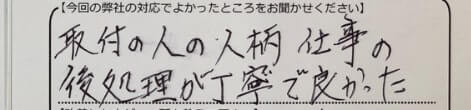 【今回の弊社の対応でよかったところをお聞かせください】
取付の人の人柄 仕事の
後処理が丁寧で良かった